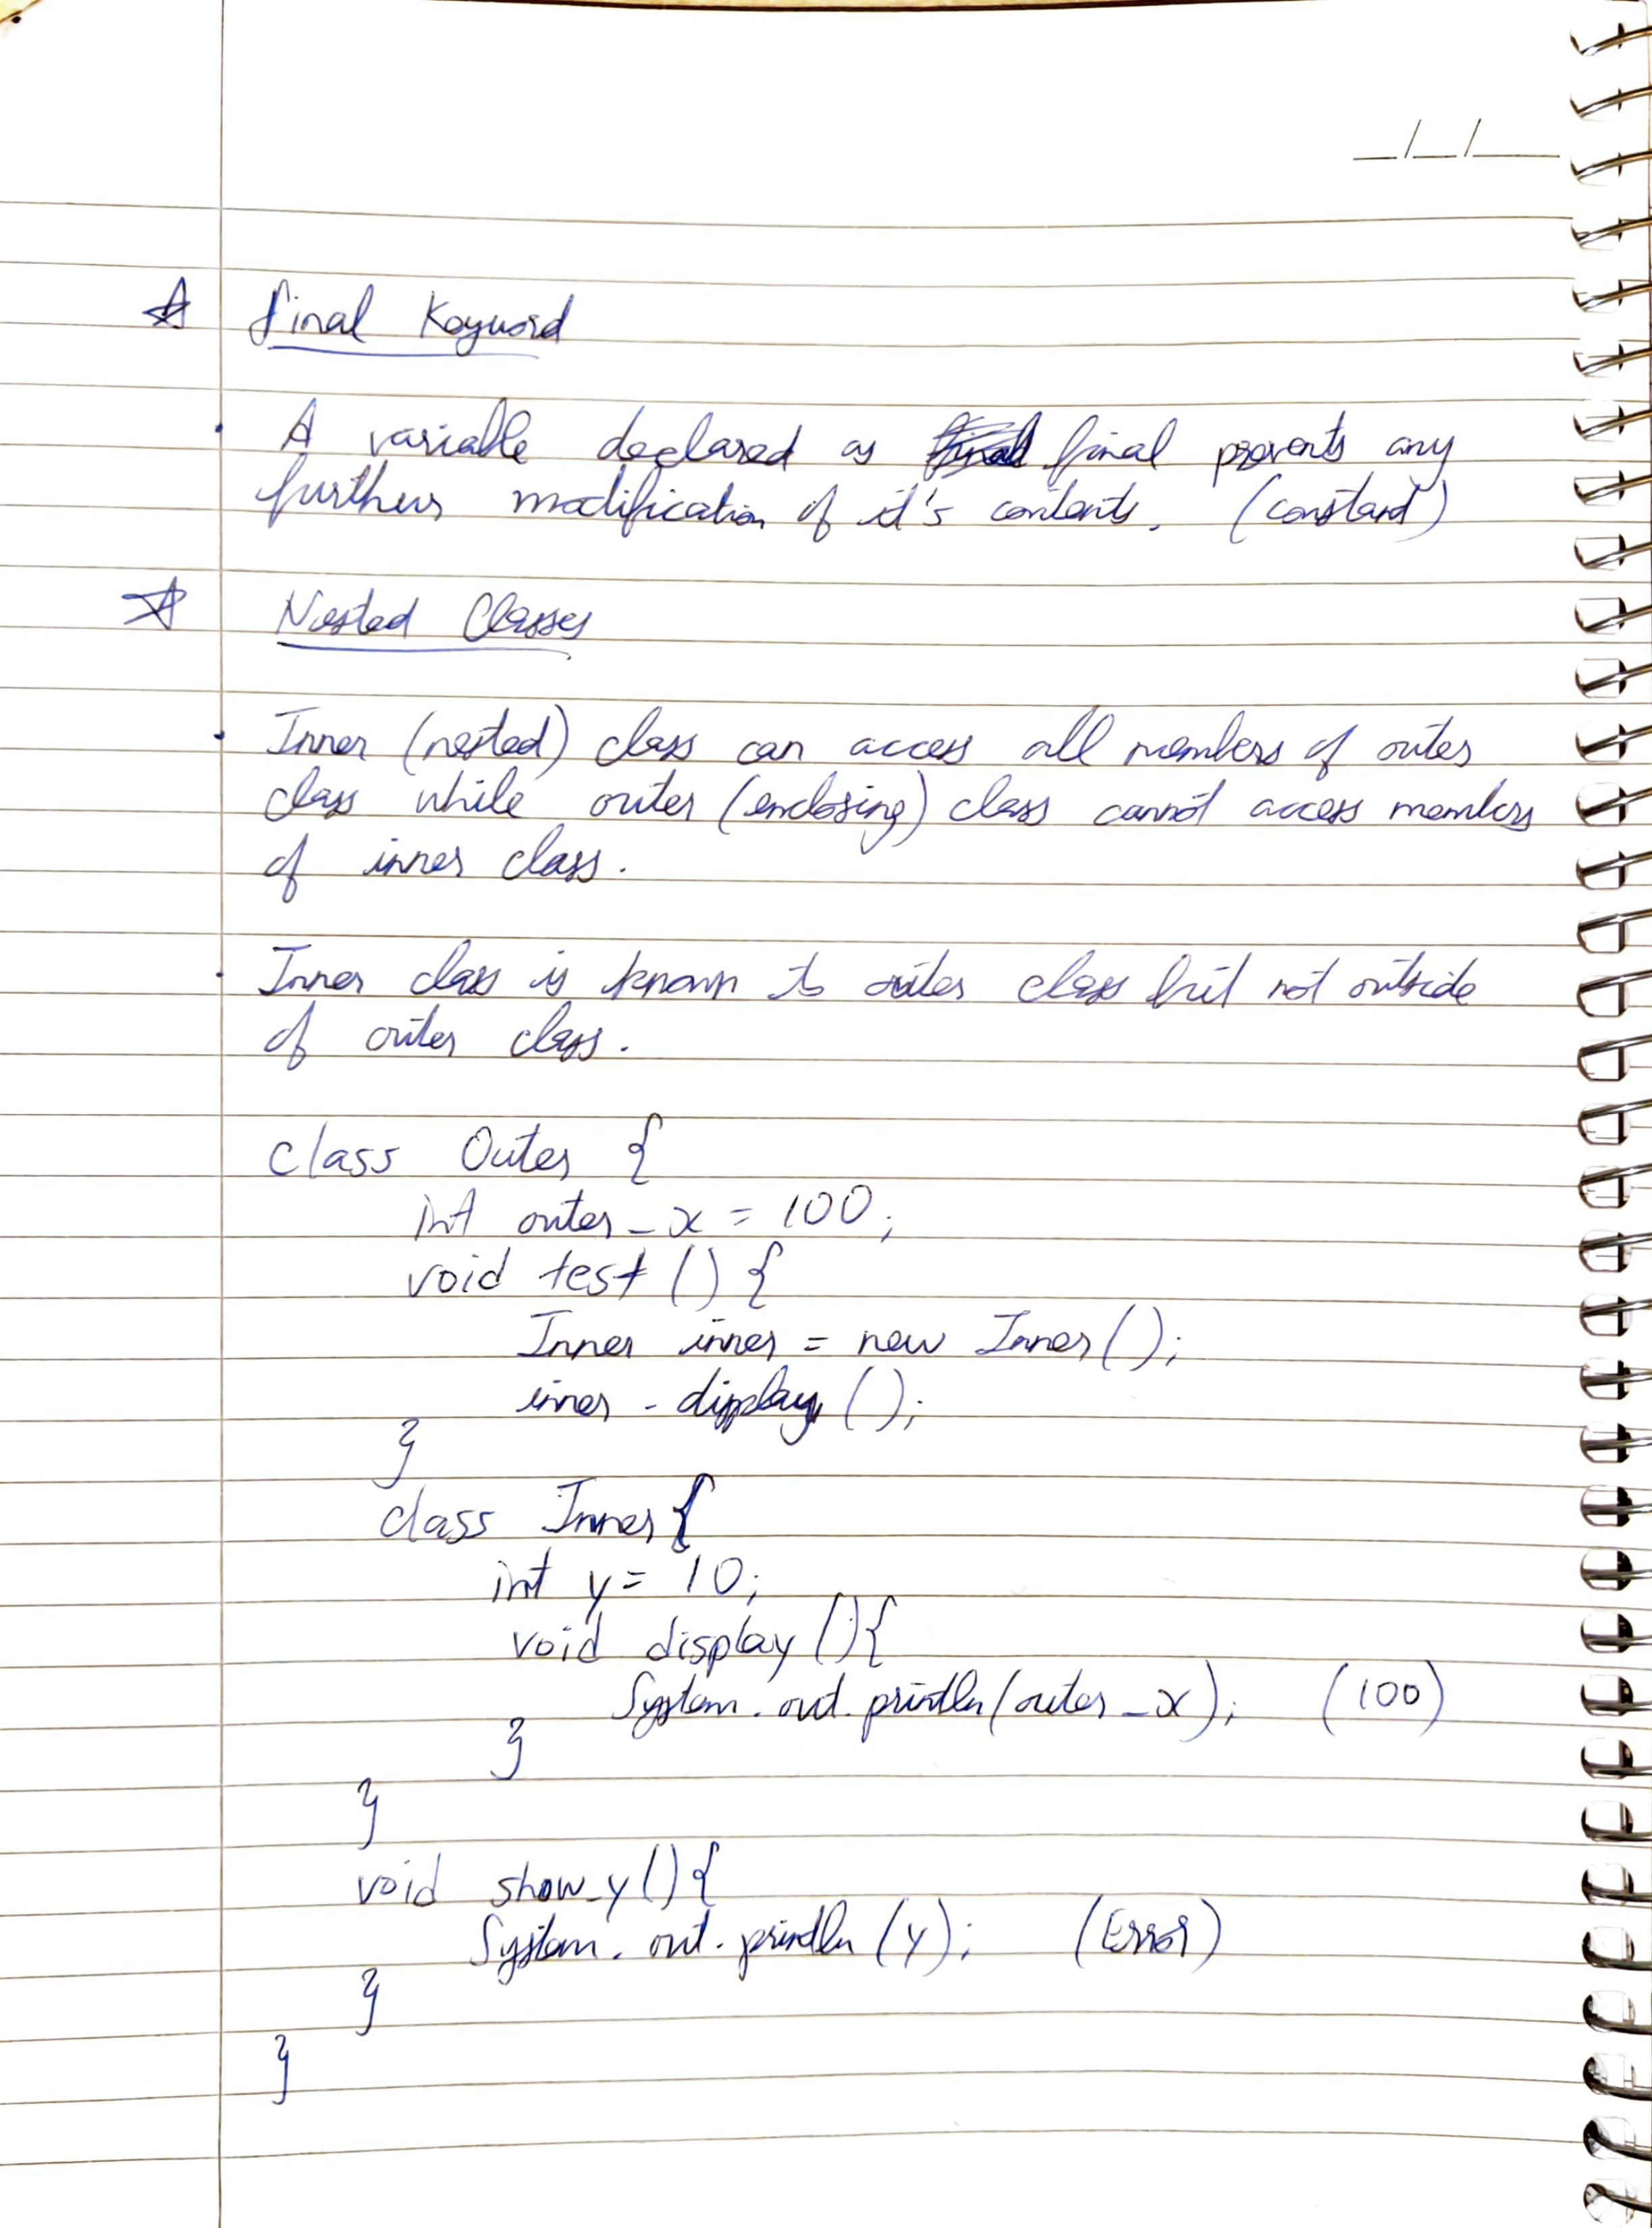 _/_/__
☆ final Keyword
· A variable declared as final prevents any
further modification of it's contents. (constant)
☆ Nested Classes
· Inner (nested) class can access all members of outer
class while outer (enclosing) class cannot access members
of inner class.
· Inner class is known to outer class but not outside
of outer class.
class Outer {
int outer_x = 100;
void test () {
Inner inner = new Inner();
inner.display();
}
class Inner {
int y = 10;
void display () {
System.out.println(outer_x); (100)
}
}
void show_y() {
System.out.println(y); (Error)
}
}